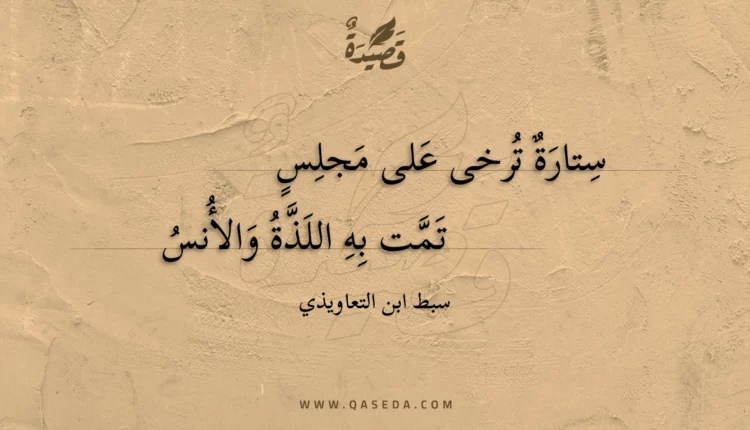 قَصِيدَةٌ
سِتارَةٌ تُرخى عَلى مَجلِسٍ
تَمَّت بِهِ اللَذَّةُ وَالأُنسُ
سبط ابن التعاويذي
WWW.QASEDA.COM